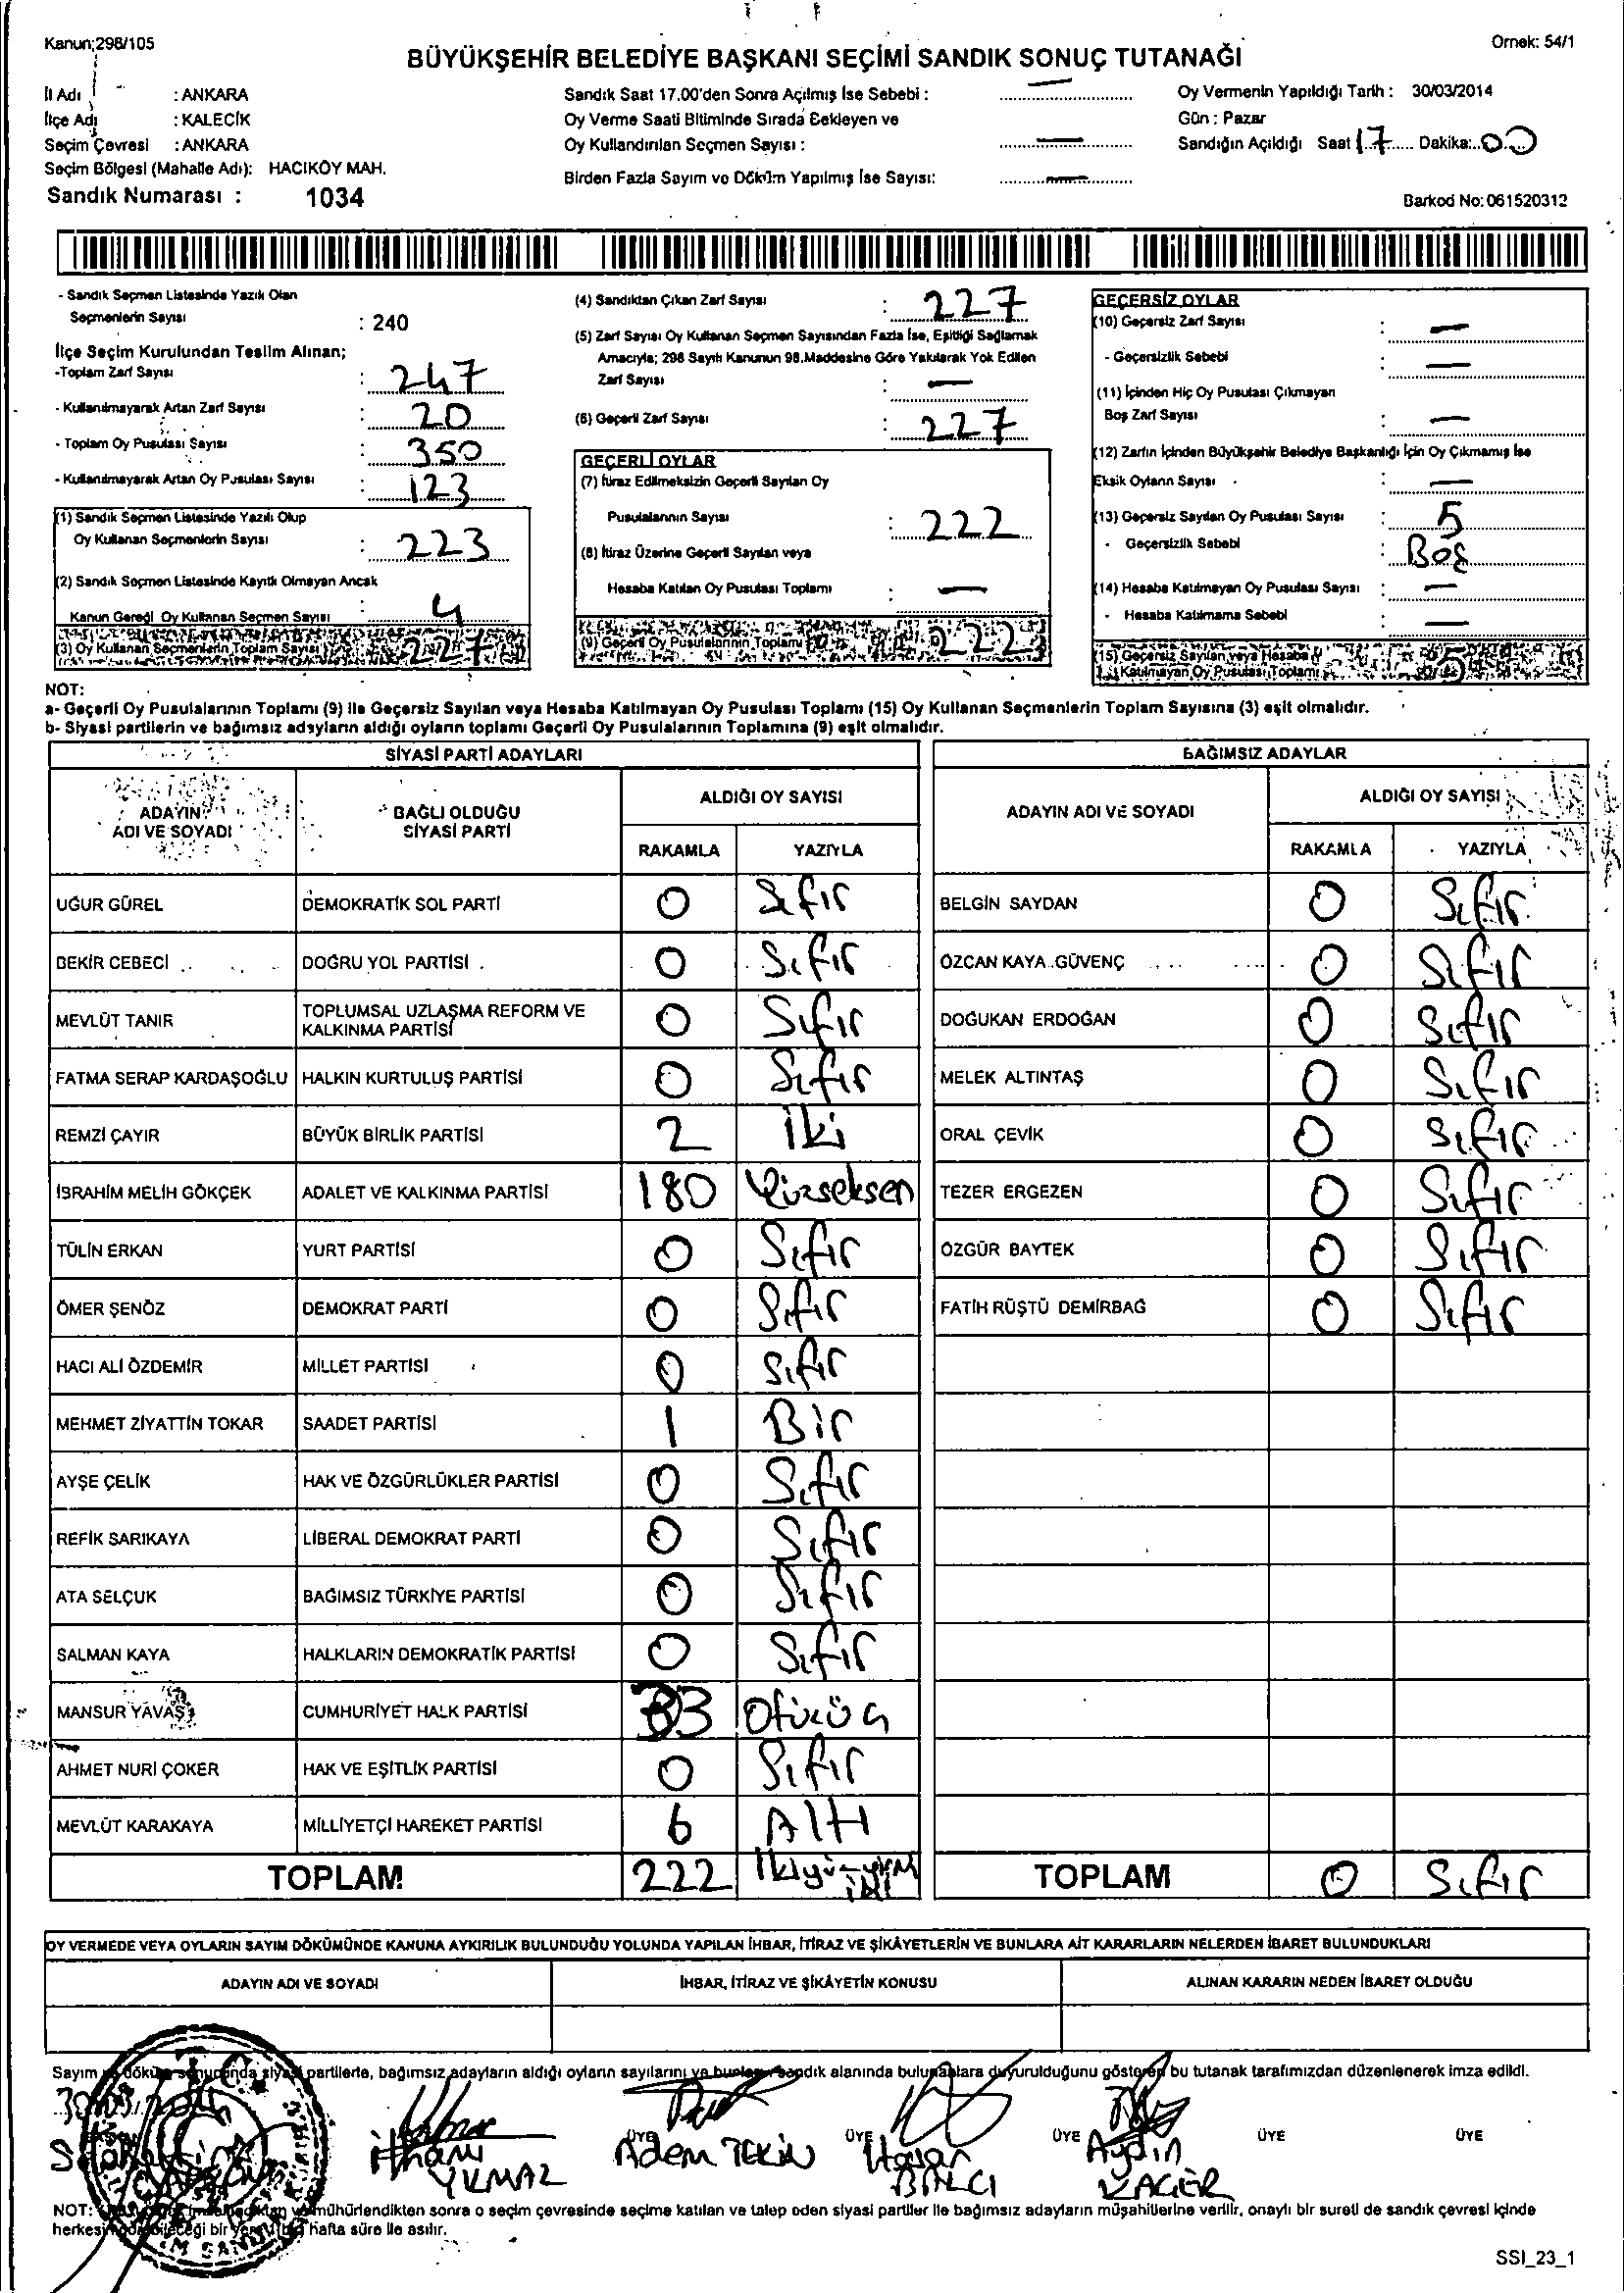 Kanun;298/105
Ornek: 54/1
BÜYÜKŞEHİR BELEDİYE BAŞKANI SEÇİMİ SANDIK SONUÇ TUTANAĞI
İl Adı : ANKARA
İlçe Adı : KALECİK
Seçim Çevresi : ANKARA
Seçim Bölgesi (Mahalle Adı): HACIKÖY MAH.
Sandık Numarası : 1034
Sandık Saat 17.00'den Sonra Açılmış İse Sebebi : —
Oy Verme Saati Bitiminde Sırada Bekleyen ve
Oy Kullandırılan Seçmen Sayısı : —
Birden Fazla Sayım ve Döküm Yapılmış İse Sayısı: —
Oy Vermenin Yapıldığı Tarih : 30/03/2014
Gün : Pazar
Sandığın Açıldığı Saat 17 Dakika: 00
Barkod No: 061520312
- Sandık Seçmen Listesinde Yazılı Olan
Seçmenlerin Sayısı : 240
İlçe Seçim Kurulundan Teslim Alınan;
-Toplam Zarf Sayısı : 247
- Kullanılmayarak Artan Zarf Sayısı : 20
- Toplam Oy Pusulası Sayısı : 350
- Kullanılmayarak Artan Oy Pusulası Sayısı : 123
(1) Sandık Seçmen Listesinde Yazılı Olup
Oy Kullanan Seçmenlerin Sayısı : 223
(2) Sandık Seçmen Listesinde Kayıtlı Olmayan Ancak
Kanun Gereği Oy Kullanan Seçmen Sayısı : 4
(3) Oy Kullanan Seçmenlerin Toplam Sayısı 227
(4) Sandıktan Çıkan Zarf Sayısı : 227
(5) Zarf Sayısı Oy Kullanan Seçmen Sayısından Fazla İse, Eşitliği Sağlamak
Amacıyla; 298 Sayılı Kanunun 98.Maddesine Göre Yakılarak Yok Edilen
Zarf Sayısı : —
(6) Geçerli Zarf Sayısı : 227
GEÇERLİ OYLAR
(7) İtiraz Edilmeksizin Geçerli Sayılan Oy
Pusulalarının Sayısı : 222
(8) İtiraz Üzerine Geçerli Sayılan veya
Hesaba Katılan Oy Pusulası Toplamı : —
(9) Geçerli Oy Pusulalarının Toplamı 222
GEÇERSİZ OYLAR
(10) Geçersiz Zarf Sayısı : —
- Geçersizlik Sebebi : —
(11) İçinden Hiç Oy Pusulası Çıkmayan
Boş Zarf Sayısı : —
(12) Zarfın İçinden Büyükşehir Belediye Başkanlığı İçin Oy Çıkmamış İse
Eksik Oyların Sayısı : —
(13) Geçersiz Sayılan Oy Pusulası Sayısı : 5
- Geçersizlik Sebebi : Boş
(14) Hesaba Katılmayan Oy Pusulası Sayısı : —
- Hesaba Katılmama Sebebi : —
(15) Geçersiz Sayılan veya Hesaba
Katılmayan Oy Pusulası Toplamı 5
NOT:
a- Geçerli Oy Pusulalarının Toplamı (9) ile Geçersiz Sayılan veya Hesaba Katılmayan Oy Pusulası Toplamı (15) Oy Kullanan Seçmenlerin Toplam Sayısına (3) eşit olmalıdır.
b- Siyasi partilerin ve bağımsız adayların aldığı oyların toplamı Geçerli Oy Pusulalarının Toplamına (9) eşit olmalıdır.
SİYASİ PARTİ ADAYLARI
ADAYIN ADI VE SOYADI BAĞLI OLDUĞU SİYASİ PARTİ ALDIĞI OY SAYISI
RAKAMLA YAZIYLA
UĞUR GÜREL DEMOKRATİK SOL PARTİ 0 Sıfır
BEKİR CEBECİ DOĞRU YOL PARTİSİ 0 Sıfır
MEVLÜT TANIR TOPLUMSAL UZLAŞMA REFORM VE KALKINMA PARTİSİ 0 Sıfır
FATMA SERAP KARDAŞOĞLU HALKIN KURTULUŞ PARTİSİ 0 Sıfır
REMZİ ÇAYIR BÜYÜK BİRLİK PARTİSİ 2 İki
İBRAHİM MELİH GÖKÇEK ADALET VE KALKINMA PARTİSİ 180 Yüzseksen
TÜLİN ERKAN YURT PARTİSİ 0 Sıfır
ÖMER ŞENÖZ DEMOKRAT PARTİ 0 Sıfır
HACI ALİ ÖZDEMİR MİLLET PARTİSİ 0 Sıfır
MEHMET ZİYATTİN TOKAR SAADET PARTİSİ 1 Bir
AYŞE ÇELİK HAK VE ÖZGÜRLÜKLER PARTİSİ 0 Sıfır
REFİK SARIKAYA LİBERAL DEMOKRAT PARTİ 0 Sıfır
ATA SELÇUK BAĞIMSIZ TÜRKİYE PARTİSİ 0 Sıfır
SALMAN KAYA HALKLARIN DEMOKRATİK PARTİSİ 0 Sıfır
MANSUR YAVAŞ CUMHURİYET HALK PARTİSİ 33 Otuzüç
AHMET NURİ ÇOKER HAK VE EŞİTLİK PARTİSİ 0 Sıfır
MEVLÜT KARAKAYA MİLLİYETÇİ HAREKET PARTİSİ 6 Altı
TOPLAM 222 İkiyüzyirmi iki
BAĞIMSIZ ADAYLAR
ADAYIN ADI VE SOYADI ALDIĞI OY SAYISI
RAKAMLA YAZIYLA
BELGİN SAYDAN 0 Sıfır
ÖZCAN KAYA GÜVENÇ 0 Sıfır
DOĞUKAN ERDOĞAN 0 Sıfır
MELEK ALTINTAŞ 0 Sıfır
ORAL ÇEVİK 0 Sıfır
TEZER ERGEZEN 0 Sıfır
ÖZGÜR BAYTEK 0 Sıfır
FATİH RÜŞTÜ DEMİRBAĞ 0 Sıfır
TOPLAM 0 Sıfır
OY VERMEDE VEYA OYLARIN SAYIM DÖKÜMÜNDE KANUNA AYKIRILIK BULUNDUĞU YOLUNDA YAPILAN İHBAR, İTİRAZ VE ŞİKÂYETLERİN VE BUNLARA AİT KARARLARIN NELERDEN İBARET BULUNDUKLARI
ADAYIN ADI VE SOYADI İHBAR, İTİRAZ VE ŞİKÂYETİN KONUSU ALINAN KARARIN NEDEN İBARET OLDUĞU
Sayım ve döküm sonucunda siyasi partilerle, bağımsız adayların aldığı oyların sayılarını ve bunların sandık alanında bulunanlara duyurulduğunu gösteren bu tutanak tarafımızdan düzenlenerek imza edildi.
T.C.
ÜYE ÜYE ÜYE ÜYE ÜYE
İlhami YILMAZ Adem TEKİN Hasan Aydın
NOT: mühürlendikten sonra o seçim çevresinde seçime katılan ve talep eden siyasi partiler ile bağımsız adayların müşahitlerine verilir, onaylı bir sureti de sandık çevresi içinde
bir hafta süre ile asılır.
SSI_23_1